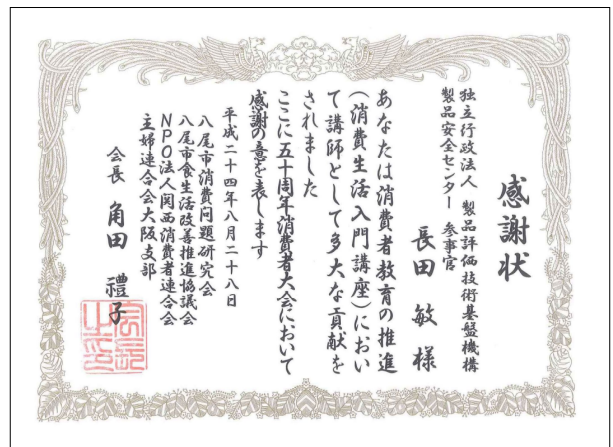 感謝状
独立行政法人 製品評価技術基盤機構
製品安全センター 参事官
長田 敏 様
あなたは消費者教育の推進
(消費生活入門講座)におい
て講師として多大な貢献を
されました
ここに五十周年消費者大会において
感謝の意を表します
平成二十四年八月二十八日
八尾市消費问題研究会
八尾市食生活改善推進協議会
NPO法人関西消費者連合会
主婦連合会大阪支部
会長 角田 禮子
会長之印